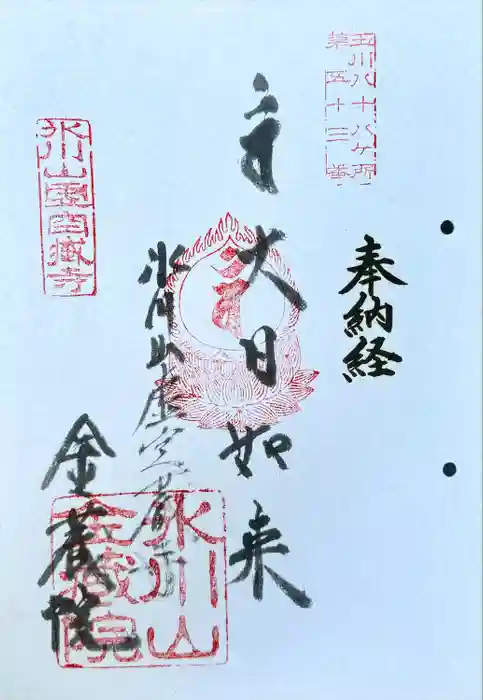 玉川八十八ケ所
第五十三番
奉納経
大日如来
氷川山虚空蔵寺
金蔵院
氷川山虚空蔵寺
氷川山
金蔵院